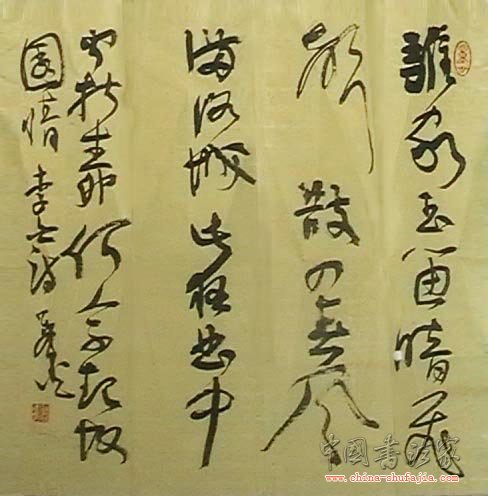 誰家玉笛暗飛
聲散入春風
滿洛城此夜曲中
聞折柳何人不起故
園情 李白詩
中国書法家
www.china-shufajia.com